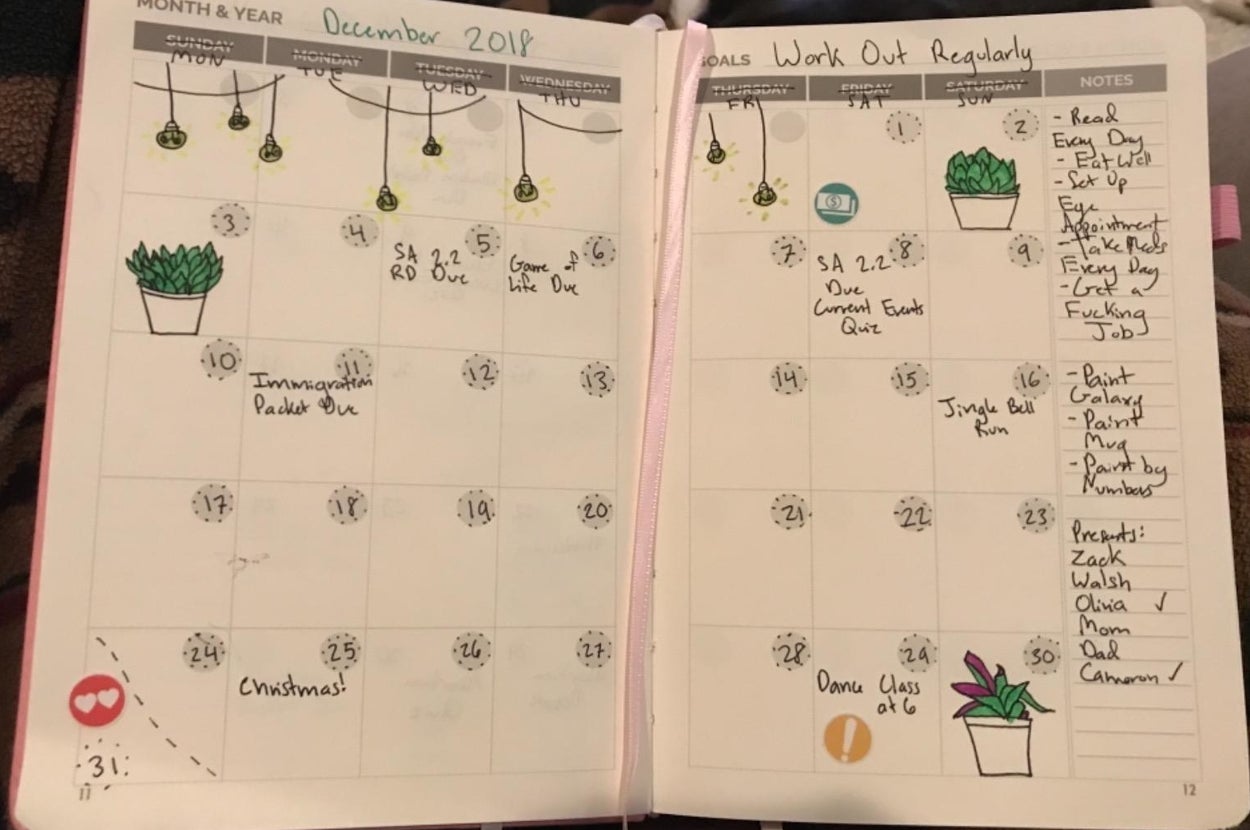 MONTH & YEAR December 2018
SUNDAY MONDAY TUESDAY WEDNESDAY
MON TUE WED THU
3 4 5 6
SA 2.2
RD Due
Game of
Life Due
10 11 12 13
Immigration
Packet Due
17 18 19 20
24 25 26 27
Christmas!
31
11
GOALS Work Out Regularly
THURSDAY FRIDAY SATURDAY NOTES
FRI SAT SUN
1 2
$
7 8 9
SA 2.2
Due
Current Events
Quiz
14 15 16
Jingle Bell
Run
21 22 23
28 29 30
Dance Class
at 6
!
- Read
Every Day
- Eat Well
- Set Up
Eye
Appointment
- Take Meds
Every Day
- Get a
Fucking
Job
- Paint
Galaxy
- Paint
Mug
- Paint by
Numbers
Presents:
Zack
Walsh
Olivia ✓
Mom
Dad
Cameron ✓
12